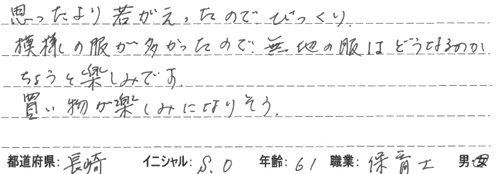 思ったより若がえったのでびっくり.
模様の服が多かったので無地の服はどうなるのか
ちょっと楽しみです
買い物が楽しみになりそう.
都道府県: 長崎 イニシャル: S.O 年齢: 61 職業: 保育士 男・女